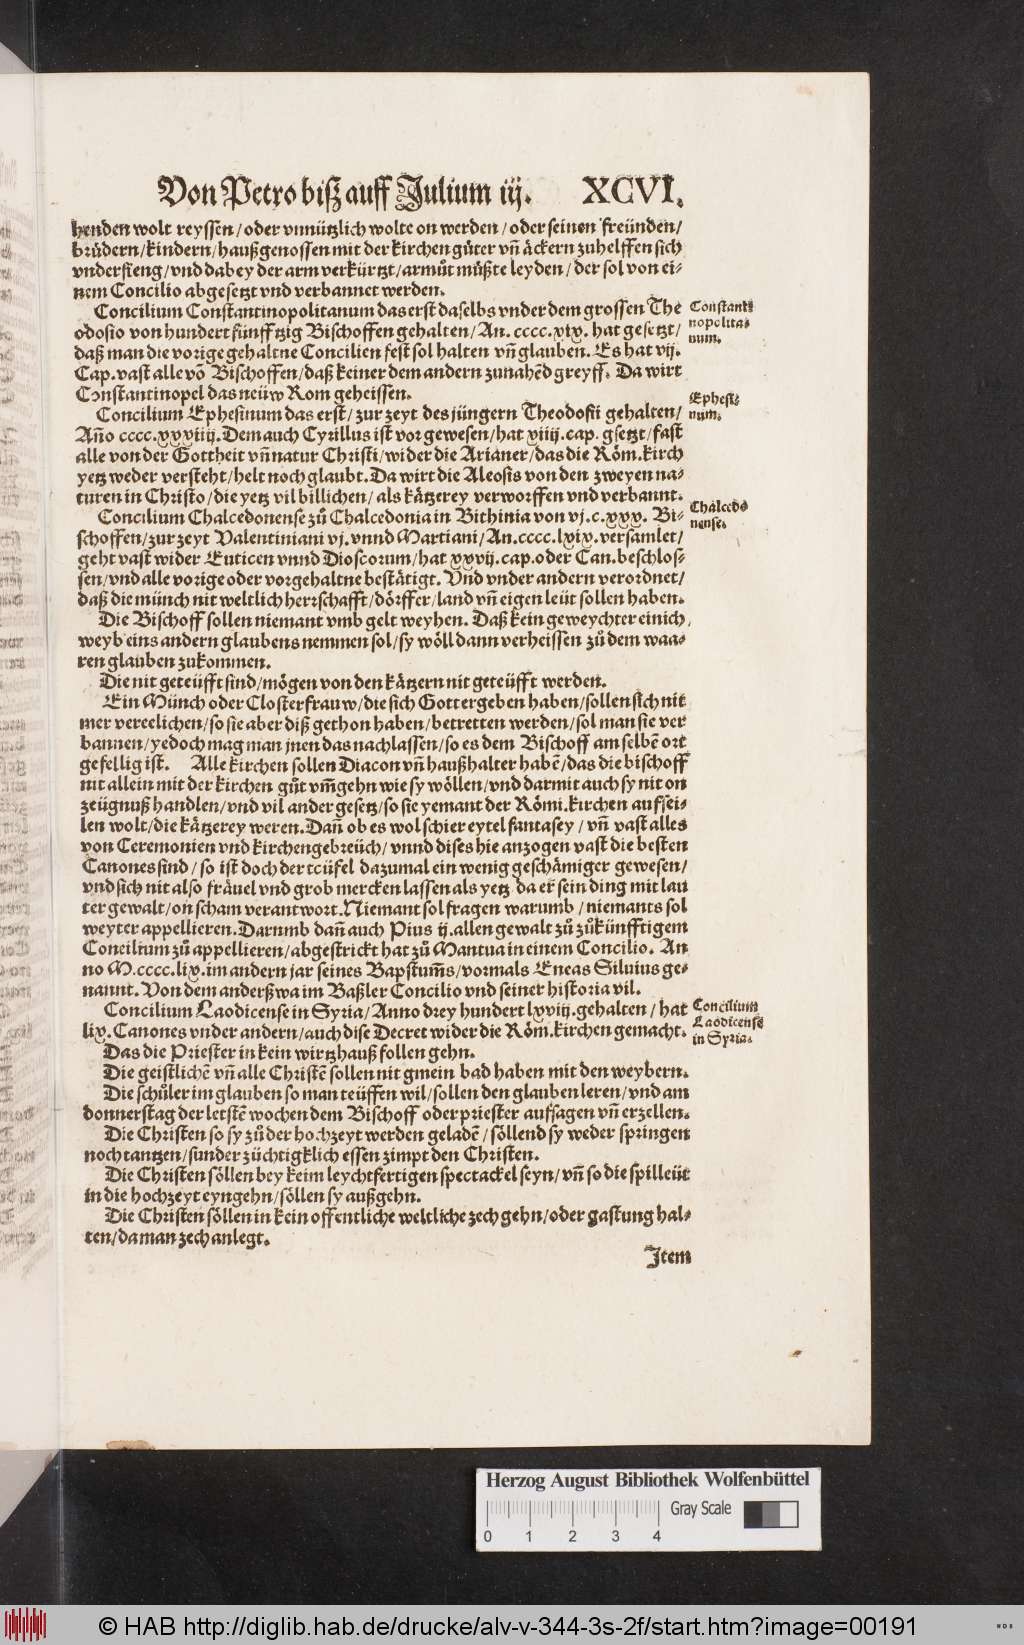 Von Petro biß auff Julium iij. XCVI.
henden wolt reyssen / oder vnnützlich wolte on werden / oder seinen freünden /
brüdern / kindern / haußgenossen mit der kirchen güter vñ äckern zuhelffen sich
vndersieng / vnd dabey der arm verkürtzt / armůt můßte leyden / der sol von ei-
nem Concilio abgesetzt vnd verbannet werden.
Concilium Constantinopolitanum das erst daselbs vnder dem grossen The
odosio von hundert fünfftzig Bischoffen gehalten / An. cccc.xix. hat gesetzt /
daß man die vorige gehaltne Concilien fest sol halten vñ glauben. Es hat vij.
Cap. vast alle võ Bischoffen / daß keiner dem andern zunahẽd greyff. Da wirt
Constantinopel das neüw Rom geheissen.
Constanti
nopolita-
num.
Concilium Ephesinum das erst / zur zeyt des jüngern Theodosii gehalten /
Año cccc.xxxiiij. Dem auch Cyrillus ist vor gewesen / hat xiiij. cap. gsetzt / fast
alle von der Gottheit vñ natur Christi / wider die Arianer / das die Röm. kirch
yetz weder versteht / helt noch glaubt. Da wirt die Aleosis von den zweyen na-
turen in Christo / die yetz vil billichen / als kätzerey verworffen vnd verbannt.
Ephesi-
num.
Concilium Chalcedonense zů Chalcedonia in Bithinia von vj.c.xxx. Bi-
schoffen / zur zeyt Valentiniani vj. vnnd Martiani / An. cccc.lxix. versamlet /
geht vast wider Euticen vnnd Dioscorum / hat xxvij. cap. oder Can. beschlos-
sen / vnd alle vorige oder vorgehaltne bestätigt. Vnd vnder andern verordnet /
daß die münch nit weltlich herrschafft / dörffer / land vñ eigen leüt sollen haben.
Chalcedo
nense.
Die Bischoff sollen niemant vmb gelt weyhen. Daß kein geweychter einich
weyb eins andern glaubens nemmen sol / sy wöll dann verheissen zů dem waa-
ren glauben zukommen.
Die nit geteüfft sind / mögen von den kätzern nit geteüfft werden.
Ein Münch oder Closterfrauw / die sich Gott ergeben haben / sollen sich nit
mer vereelichen / so sie aber diß gethon haben / betretten werden / sol man sie ver
bannen / yedoch mag man jnen das nachlassen / so es dem Bischoff am selbẽ ort
gefellig ist. Alle kirchen sollen Diacon vñ haußhalter habẽ / das die bischoff
nit allein mit der kirchen gůt vm̃gehn wie sy wöllen / vnd darmit auch sy nit on
zeügnuß handlen / vnd vil ander gesetz / so sie yemant der Römi. kirchen aufsei-
len wolt / die kätzerey weren. Dañ ob es wol schier eytel fantasey / vñ vast alles
von Ceremonien vnd kirchengebreüch / vnnd dises hie anzogen vast die besten
Canones sind / so ist doch der teüfel dazumal ein wenig geschämiger gewesen /
vnd sich nit also fräuel vnd grob mercken lassen als yetz da er sein ding mit lau
ter gewalt / on scham verantwort. Niemant sol fragen warumb / niemants sol
weyter appellieren. Darumb dañ auch Pius ij. allen gewalt zů zůkünfftigem
Concilium zů appellieren / abgestrickt hat zů Mantua in einem Concilio. An
no M.cccc.lix. im andern jar seines Bapstum̃s / vormals Eneas Siluius ge-
nannt. Von dem anderßwa im Baßler Concilio vnd seiner historia vil.
Concilium Laodicense in Syria / Anno drey hundert lxviij. gehalten / hat
lix. Canones vnder andern / auch dise Decret wider die Röm. kirchen gemacht.
Concilium
Laodicense
in Syria.
Das die Priester in kein wirtzhauß sollen gehn.
Die geistlichẽ vñ alle Christẽ sollen nit gmein bad haben mit den weybern.
Die schůler im glauben so man teüffen wil / sollen den glauben leren / vnd am
donnerstag der letstẽ wochen dem Bischoff oder priester aufsagen vñ erzellen.
Die Christen so sy zů der hochzeyt werden geladẽ / söllend sy weder springen
noch tantzen / sunder züchtigklich essen zimpt den Christen.
Die Christen söllen bey keim leychtfertigen spectackel seyn / vñ so die spilleüt
in die hochzeyt eyngehn / söllen sy außgehn.
Die Christen söllen in kein offentliche weltliche zech gehn / oder gastung hal-
ten / da man zech anlegt.
Item
Herzog August Bibliothek Wolfenbüttel
Gray Scale
0 1 2 3 4
© HAB http://diglib.hab.de/drucke/alv-v-344-3s-2f/start.htm?image=00191